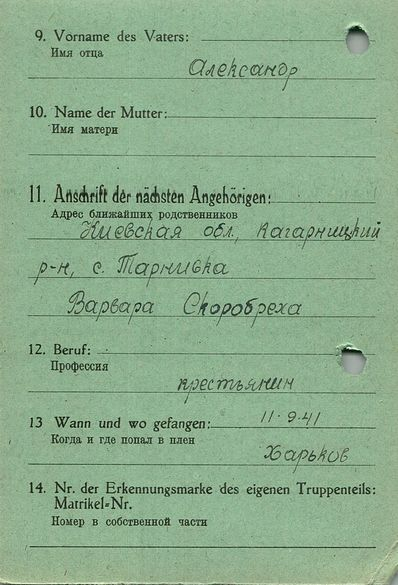 9. Vorname des Vaters:
Имя отца
Александр
10. Name der Mutter:
Имя матери
11. Anschrift der nächsten Angehörigen:
Адрес ближайших родственников
Киевская обл., Кагарницкий
р-н, с. Тарнивка
Варвара Скоробреха
12. Beruf:
Профессия
крестьянин
13 Wann und wo gefangen: 11.9.41
Когда и где попал в плен
Харьков
14. Nr. der Erkennungsmarke des eigenen Truppenteils:
Matrikel=Nr.
Номер в собственной части